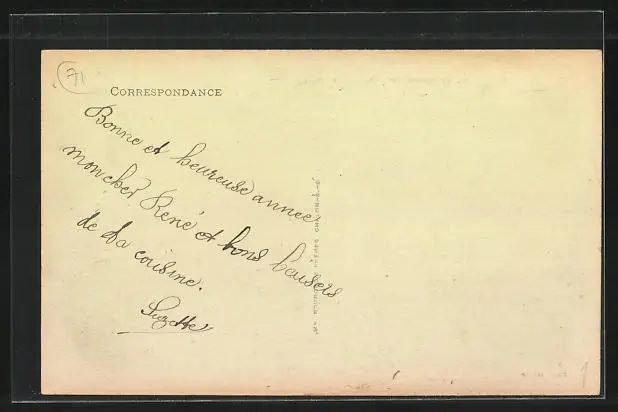 71
CORRESPONDANCE
Bonne et heureuse année
mon cher René et bons baisers
de ta cousine.
Suzette
CHALON-S-S